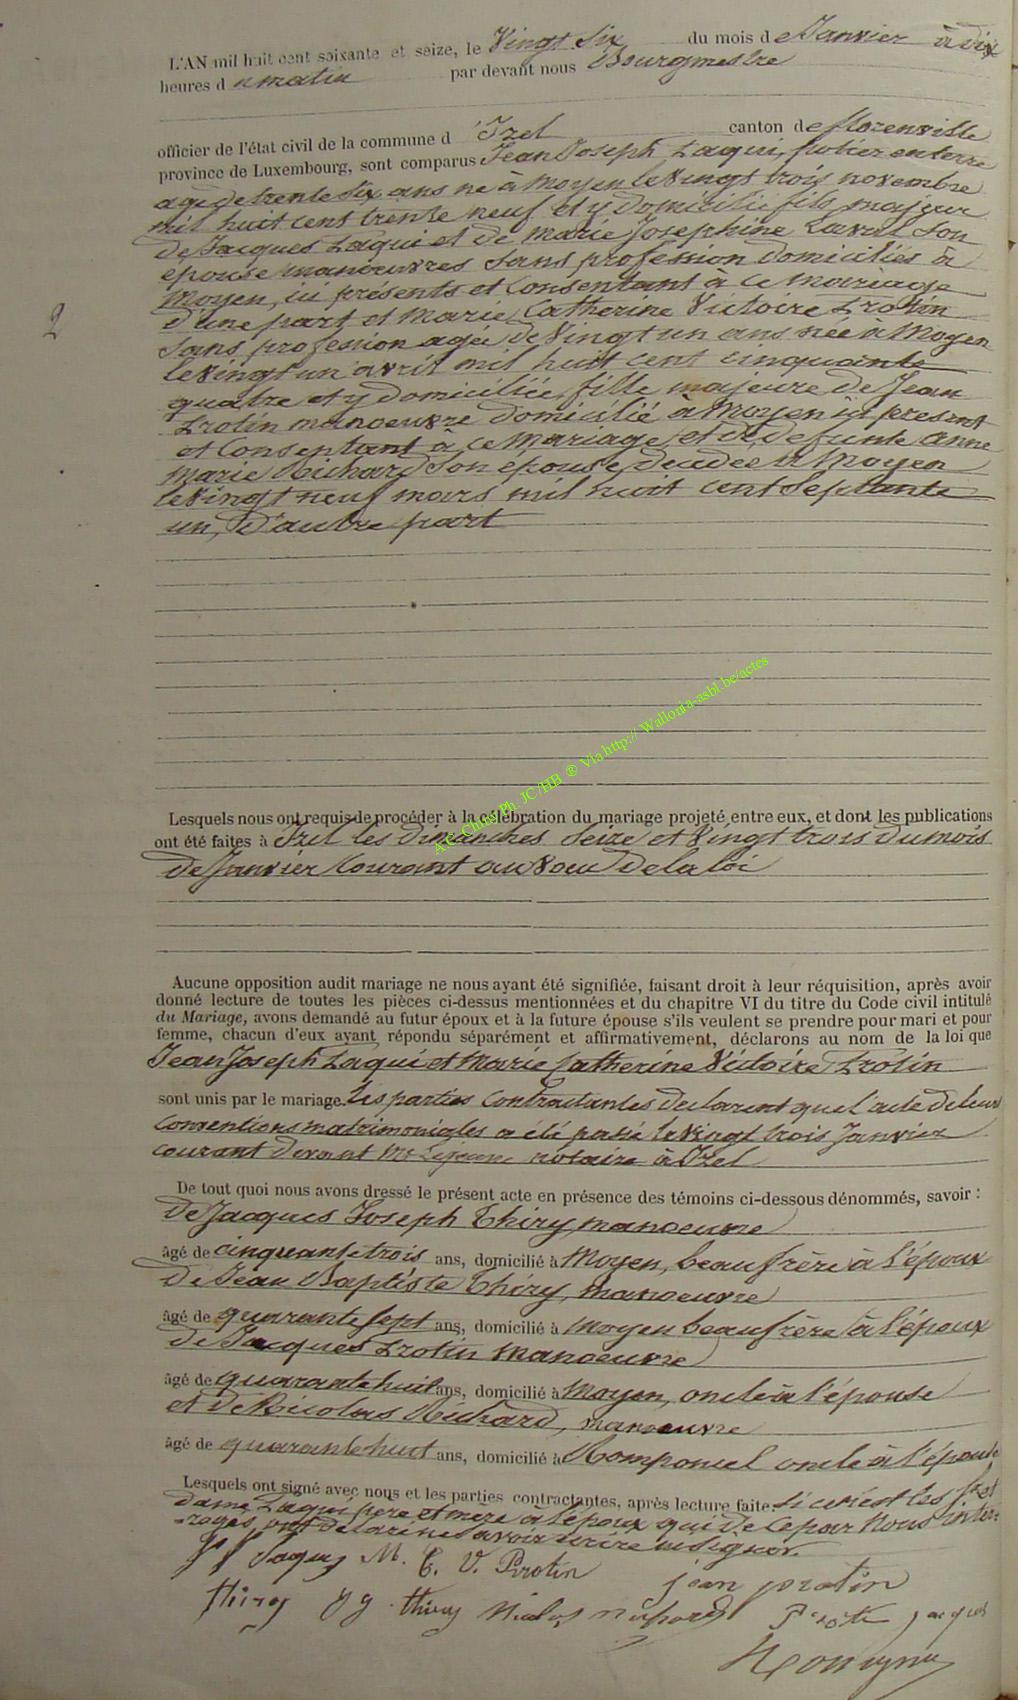 L'AN mil huit cent soixante et seize, le Vingt Six du mois de Janvier à dix
heures du matin par devant nous Bourgmestre
officier de l'état civil de la commune d'Izel canton de florenville
province de Luxembourg, sont comparus Jean Joseph Laqui, potier en terre
agé de trente Six ans né à Moyen le vingt trois novembre
mil huit cent trente neuf et y domicilié fils majeur
de Jacques Laqui et de Marie Josephine Son
épouse manoeuvres Sans profession domiciliés à
Moyen, ici présents et Consentant à ce mariage
d'une part et Marie Catherine Victoire Protin
Sans profession agée de Vingt un ans née à Moyen
le vingt un avril mil huit cent cinquante
quatre et y domiciliée fille majeure de Jean
Protin manoeuvre domicilié à Moyen ici présent
et Consentant à ce Mariage et de defunte Anne
Marie Richard Son épouse, décédée à Moyen
le vingt neuf mars mil huit cent Septante
un, D'autre part
2
Lesquels nous ont requis de procéder à la célébration du mariage projeté entre eux, et dont les publications
ont été faites à Izel les Dimanches Seize et Vingt trois du mois
de Janvier Courant au voeu de la loi
A.C. Chiny Ph. JC/HB ® Via http:// Wallonia-asbl.be/actes
Aucune opposition audit mariage ne nous ayant été signifiée, faisant droit à leur réquisition, après avoir
donné lecture de toutes les pièces ci-dessus mentionnées et du chapitre VI du titre du Code civil intitulé
du Mariage, avons demandé au futur époux et à la future épouse s'ils veulent se prendre pour mari et pour
femme, chacun d'eux ayant répondu séparément et affirmativement, déclarons au nom de la loi que
Jean Joseph Laqui et Marie Catherine Victoire Protin
sont unis par le mariage. Les parties Contractantes déclarent que l'acte de leurs
Conventions matrimoniales a été passé le vingt trois Janvier
courant devant Mr Lejeune notaire à Izel
De tout quoi nous avons dressé le présent acte en présence des témoins ci-dessous dénommés, savoir :
de Jacques Joseph Thiry, manoeuvre
âgé de cinquante trois ans, domicilié à Moyen, beau frère à l'époux
de Jean Baptiste Thiry, manoeuvre
âgé de quarante sept ans, domicilié à Moyen beau frère à l'époux
de Jacques Protin manoeuvre
âgé de quarante huit ans, domicilié à Moyen, oncle à l'épouse
et de Nicolas Richard, manoeuvre
âgé de quarante huit ans, domicilié à Romponcel oncle à l'épouse
Lesquels ont signé avec nous et les parties contractantes, après lecture faite Si ce n'est les Sr et
dame Laqui père et mère à l'époux qui de ce par Nous inter-
rogés, ont déclaré ne Savoir écrire ni signer.
M. C. V. Protin
jean protin
thiry J J thiry Nicolas jacques